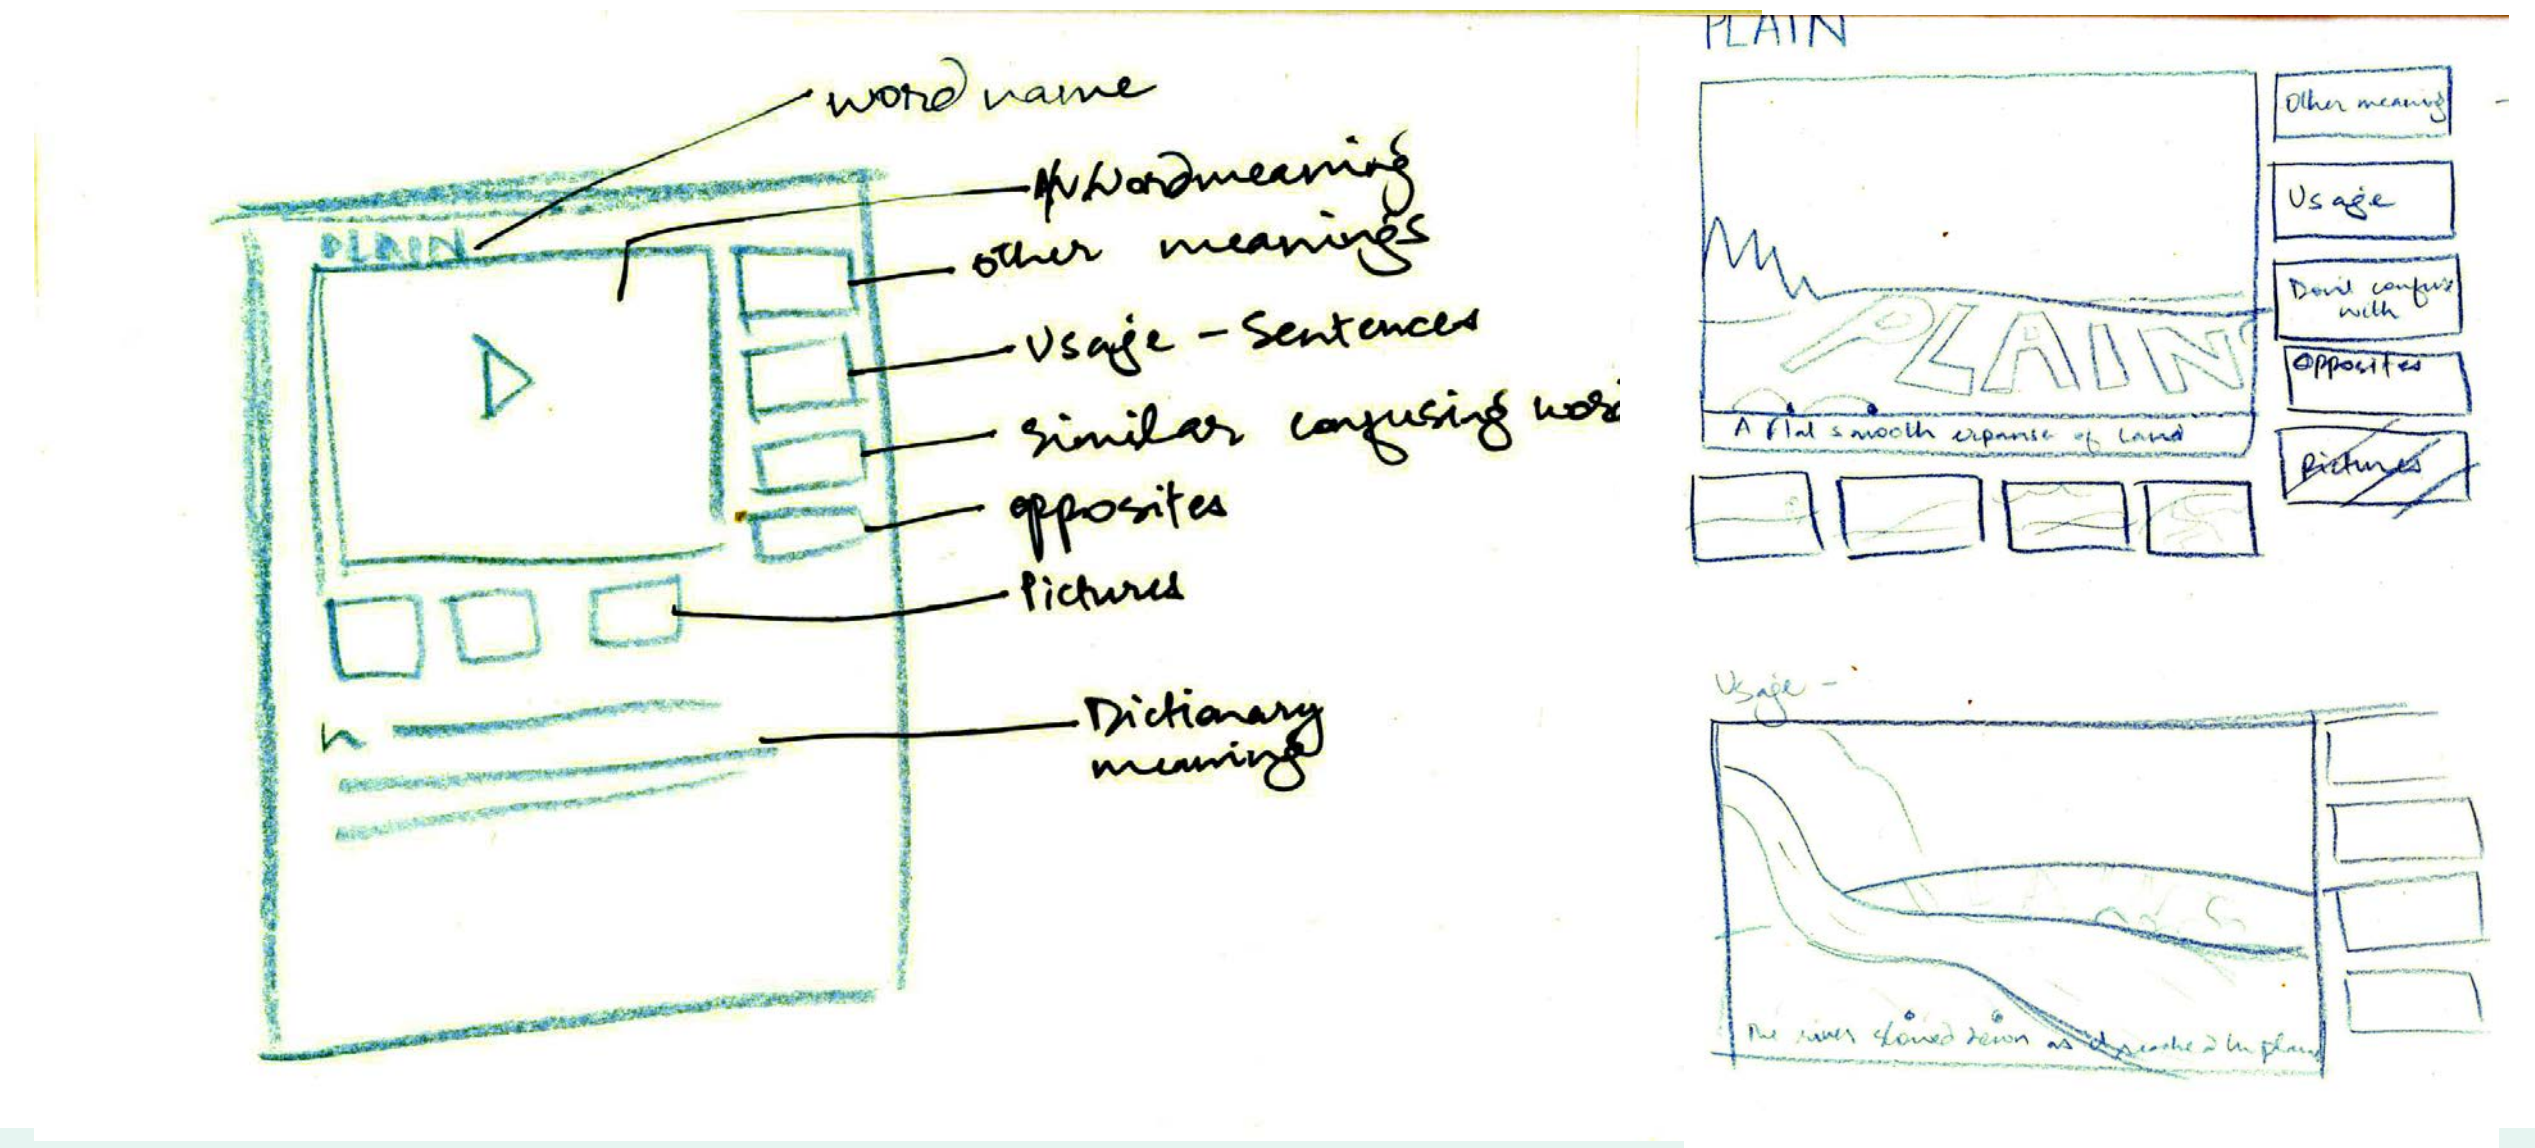 word name
A/V Word meaning
PLAIN
other meanings
Usage - Sentences
Similar confusing
opposites
Pictures
n
Dictionary
meaning
PLAIN
Other meaning
Usage
Don't confuse
with
PLAIN
Opposites
A flat smooth expanse of land
Pictures
Usage -
The river slowed down as it reached the plains